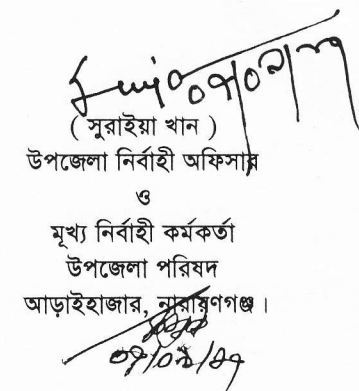 ( সুরাইয়া খান )
উপজেলা নির্বাহী অফিসার
ও
মূখ্য নির্বাহী কর্মকর্তা
উপজেলা পরিষদ
আড়াইহাজার, নারায়ণগঞ্জ।